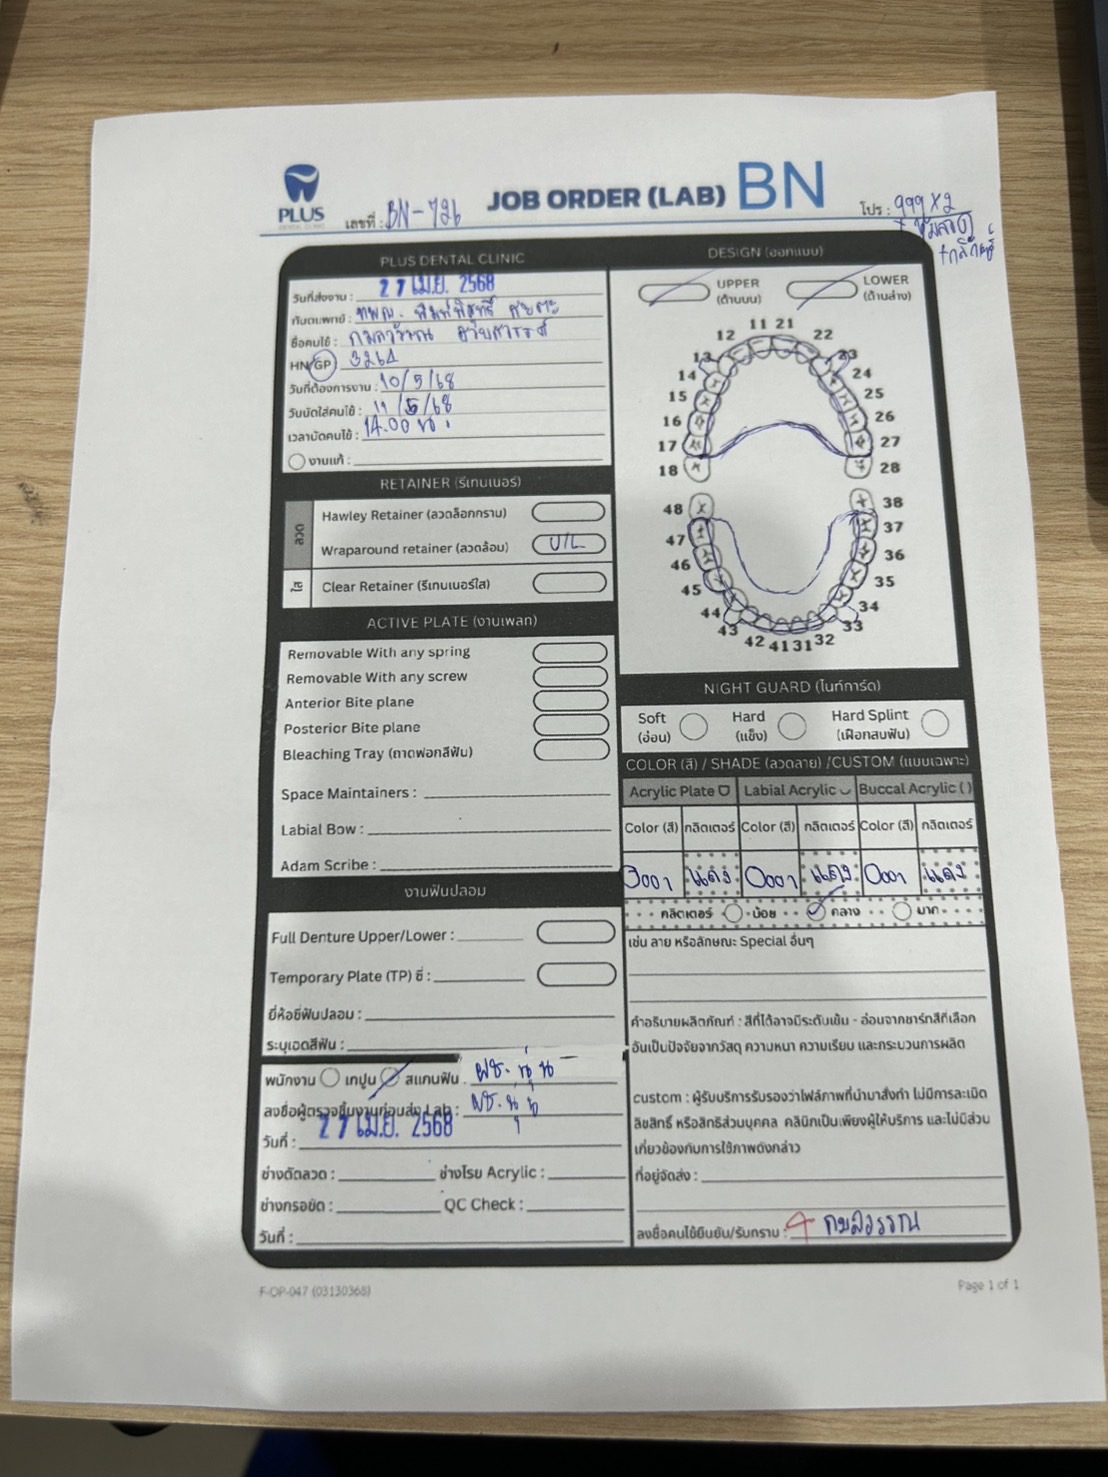 PLUS
DENTAL CLINIC
เลขที่ : BN-726
JOB ORDER (LAB) BN
โปร : 999 x 2
PLUS DENTAL CLINIC
วันที่ส่งงาน : 27 เม.ย. 2568
ทันตแพทย์ : ทพญ.
ชื่อคนไข้ :
HN/GP 3264
วันที่ต้องการงาน : 10/5/68
วันนัดใส่คนไข้ : 11/5/68
เวลานัดคนไข้ : 14.00 น.
งานแก้ :
RETAINER (รีเทนเนอร์)
ลวด
Hawley Retainer (ลวดล็อกกราม)
Wraparound retainer (ลวดล้อม) U/L
ใส
Clear Retainer (รีเทนเนอร์ใส)
ACTIVE PLATE (งานเพลท)
Removable With any spring
Removable With any screw
Anterior Bite plane
Posterior Bite plane
Bleaching Tray (ถาดฟอกสีฟัน)
Space Maintainers :
Labial Bow :
Adam Scribe :
งานฟันปลอม
Full Denture Upper/Lower :
Temporary Plate (TP) ซี่ :
ยี่ห้อซี่ฟันปลอม :
ระบุเฉดสีฟัน :
พนักงาน เทปูน สแกนฟัน ผช. นุ่น
ลงชื่อผู้ตรวจชิ้นงานก่อนส่ง Lab : ผช. นุ่น
วันที่ : 27 เม.ย. 2568
ช่างดัดลวด : ช่างโรย Acrylic :
ช่างกรอขัด : QC Check :
วันที่ :
DESIGN (ออกแบบ)
UPPER (ด้านบน)
LOWER (ด้านล่าง)
11 21
12 22
13 23
14 24
15 25
16 26
17 27
18 28
48 38
47 37
46 36
45 35
44 34
43 33
42 41 31 32
NIGHT GUARD (ไนท์การ์ด)
Soft (อ่อน)
Hard (แข็ง)
Hard Splint (เฝือกสบฟัน)
COLOR (สี) / SHADE (ลวดลาย) /CUSTOM (แบบเฉพาะ)
Acrylic Plate Labial Acrylic Buccal Acrylic ( )
Color (สี) กลิตเตอร์ Color (สี) กลิตเตอร์ Color (สี) กลิตเตอร์
0001 แดง 0001 แดง 0001 แดง
กลิตเตอร์ น้อย กลาง มาก
เช่น ลาย หรือลักษณะ Special อื่นๆ
คำอธิบายผลิตภัณฑ์ : สีที่ได้อาจมีระดับเข้ม - อ่อนจากชาร์ทสีที่เลือก
อันเป็นปัจจัยจากวัสดุ ความหนา ความเรียบ และกระบวนการผลิต
custom : ผู้รับบริการรับรองว่าไฟล์ภาพที่นำมาสั่งทำ ไม่มีการละเมิด
ลิขสิทธิ์ หรือสิทธิส่วนบุคคล คลินิกเป็นเพียงผู้ให้บริการ และไม่มีส่วน
เกี่ยวข้องกับการใช้ภาพดังกล่าว
ที่อยู่จัดส่ง :
ลงชื่อคนไข้ยืนยัน/รับทราบ : กมลวรรณ
F-OP-047 (03130368)
Page 1 of 1